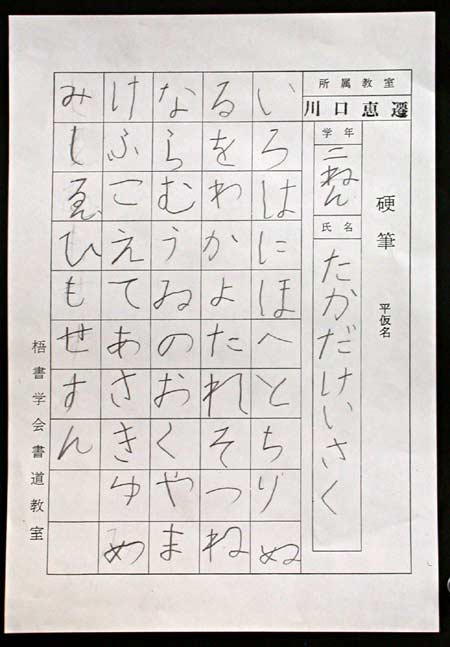 硬筆 平仮名
所属教室
川口恵遷
学年
二ねん
氏名
たかだけいさく
いろはにほへとちりぬ
るをわかよたれそつね
ならむうゐのおくやま
けふこえてあさきゆめ
みしゑひもせすん
梧書学会書道教室